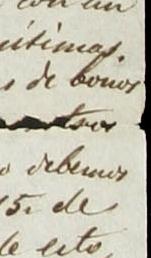 con un
ísimas
s de bonos
o debemos
15. de
de esto,